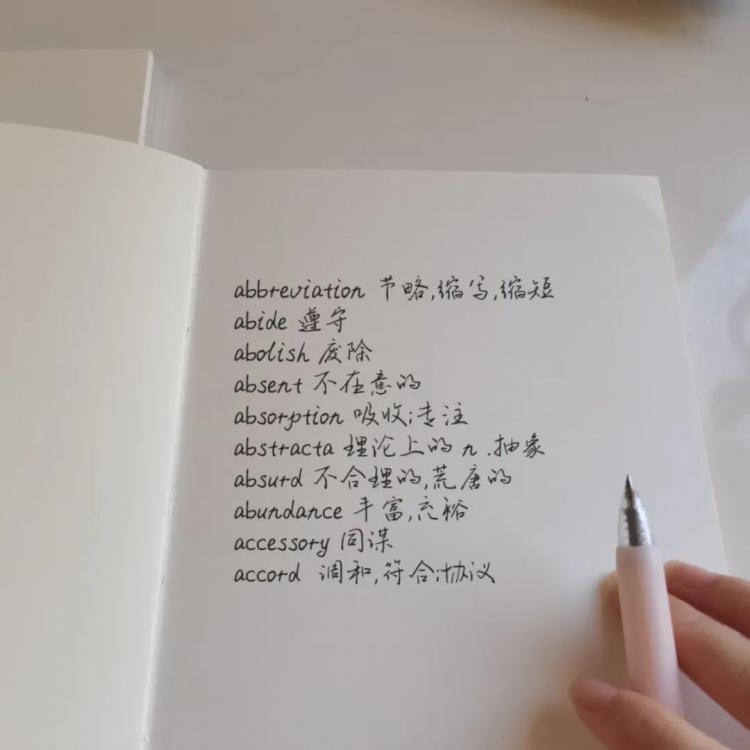 abbreviation 节略,缩写,缩短
abide 遵守
abolish 废除
absent 不在意的
absorption 吸收;专注
abstracta 理论上的 n.抽象
absurd 不合理的,荒唐的
abundance 丰富,充裕
accessory 同谋
accord 调和,符合;协议